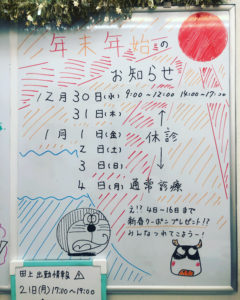 年末年始の
お知らせ
12月30日(水) 9:00〜12:00 14:00〜17:00
31日(木) ↑
1月1日(金) 休診
2日(土)
3日(日) ↓
4日(月) 通常診療
え!? 4日〜16日まで
新春クーポンプレゼント!?
みんなつれてこよう〜!
田上 出勤情報
21日(月) 17:00〜19:00